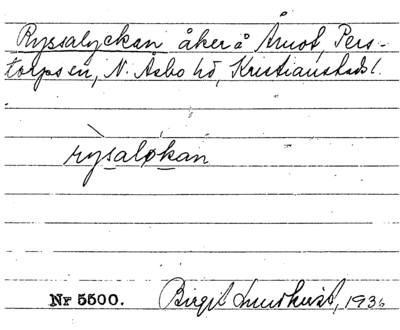 Ryssalyckan åker å Årnot, Pers-
torps sn, N. Åsbo hd, Kristianstads l.
rỳsaløkan
Nr 5500. Birgit Lundkvist, 1936